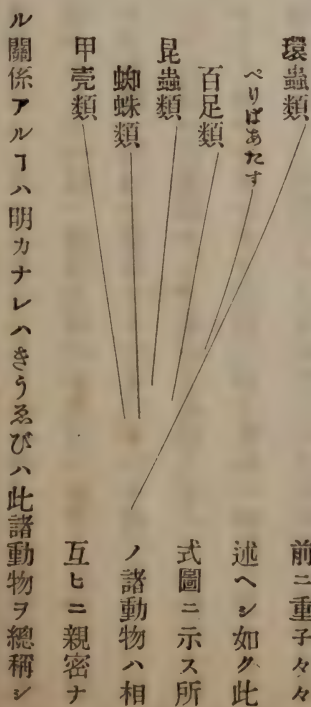 環蟲類
ぺりぱあたす
百足類
昆蟲類
蜘蛛類
甲壳類
前ニ重子々々
述ヘシ如ク此
式圖ニ示ス所
ノ諸動物ハ相
互ヒニ親密ナ
ル關係アルヿハ明カナレハきうゑびハ此諸動物ヲ總稱シ